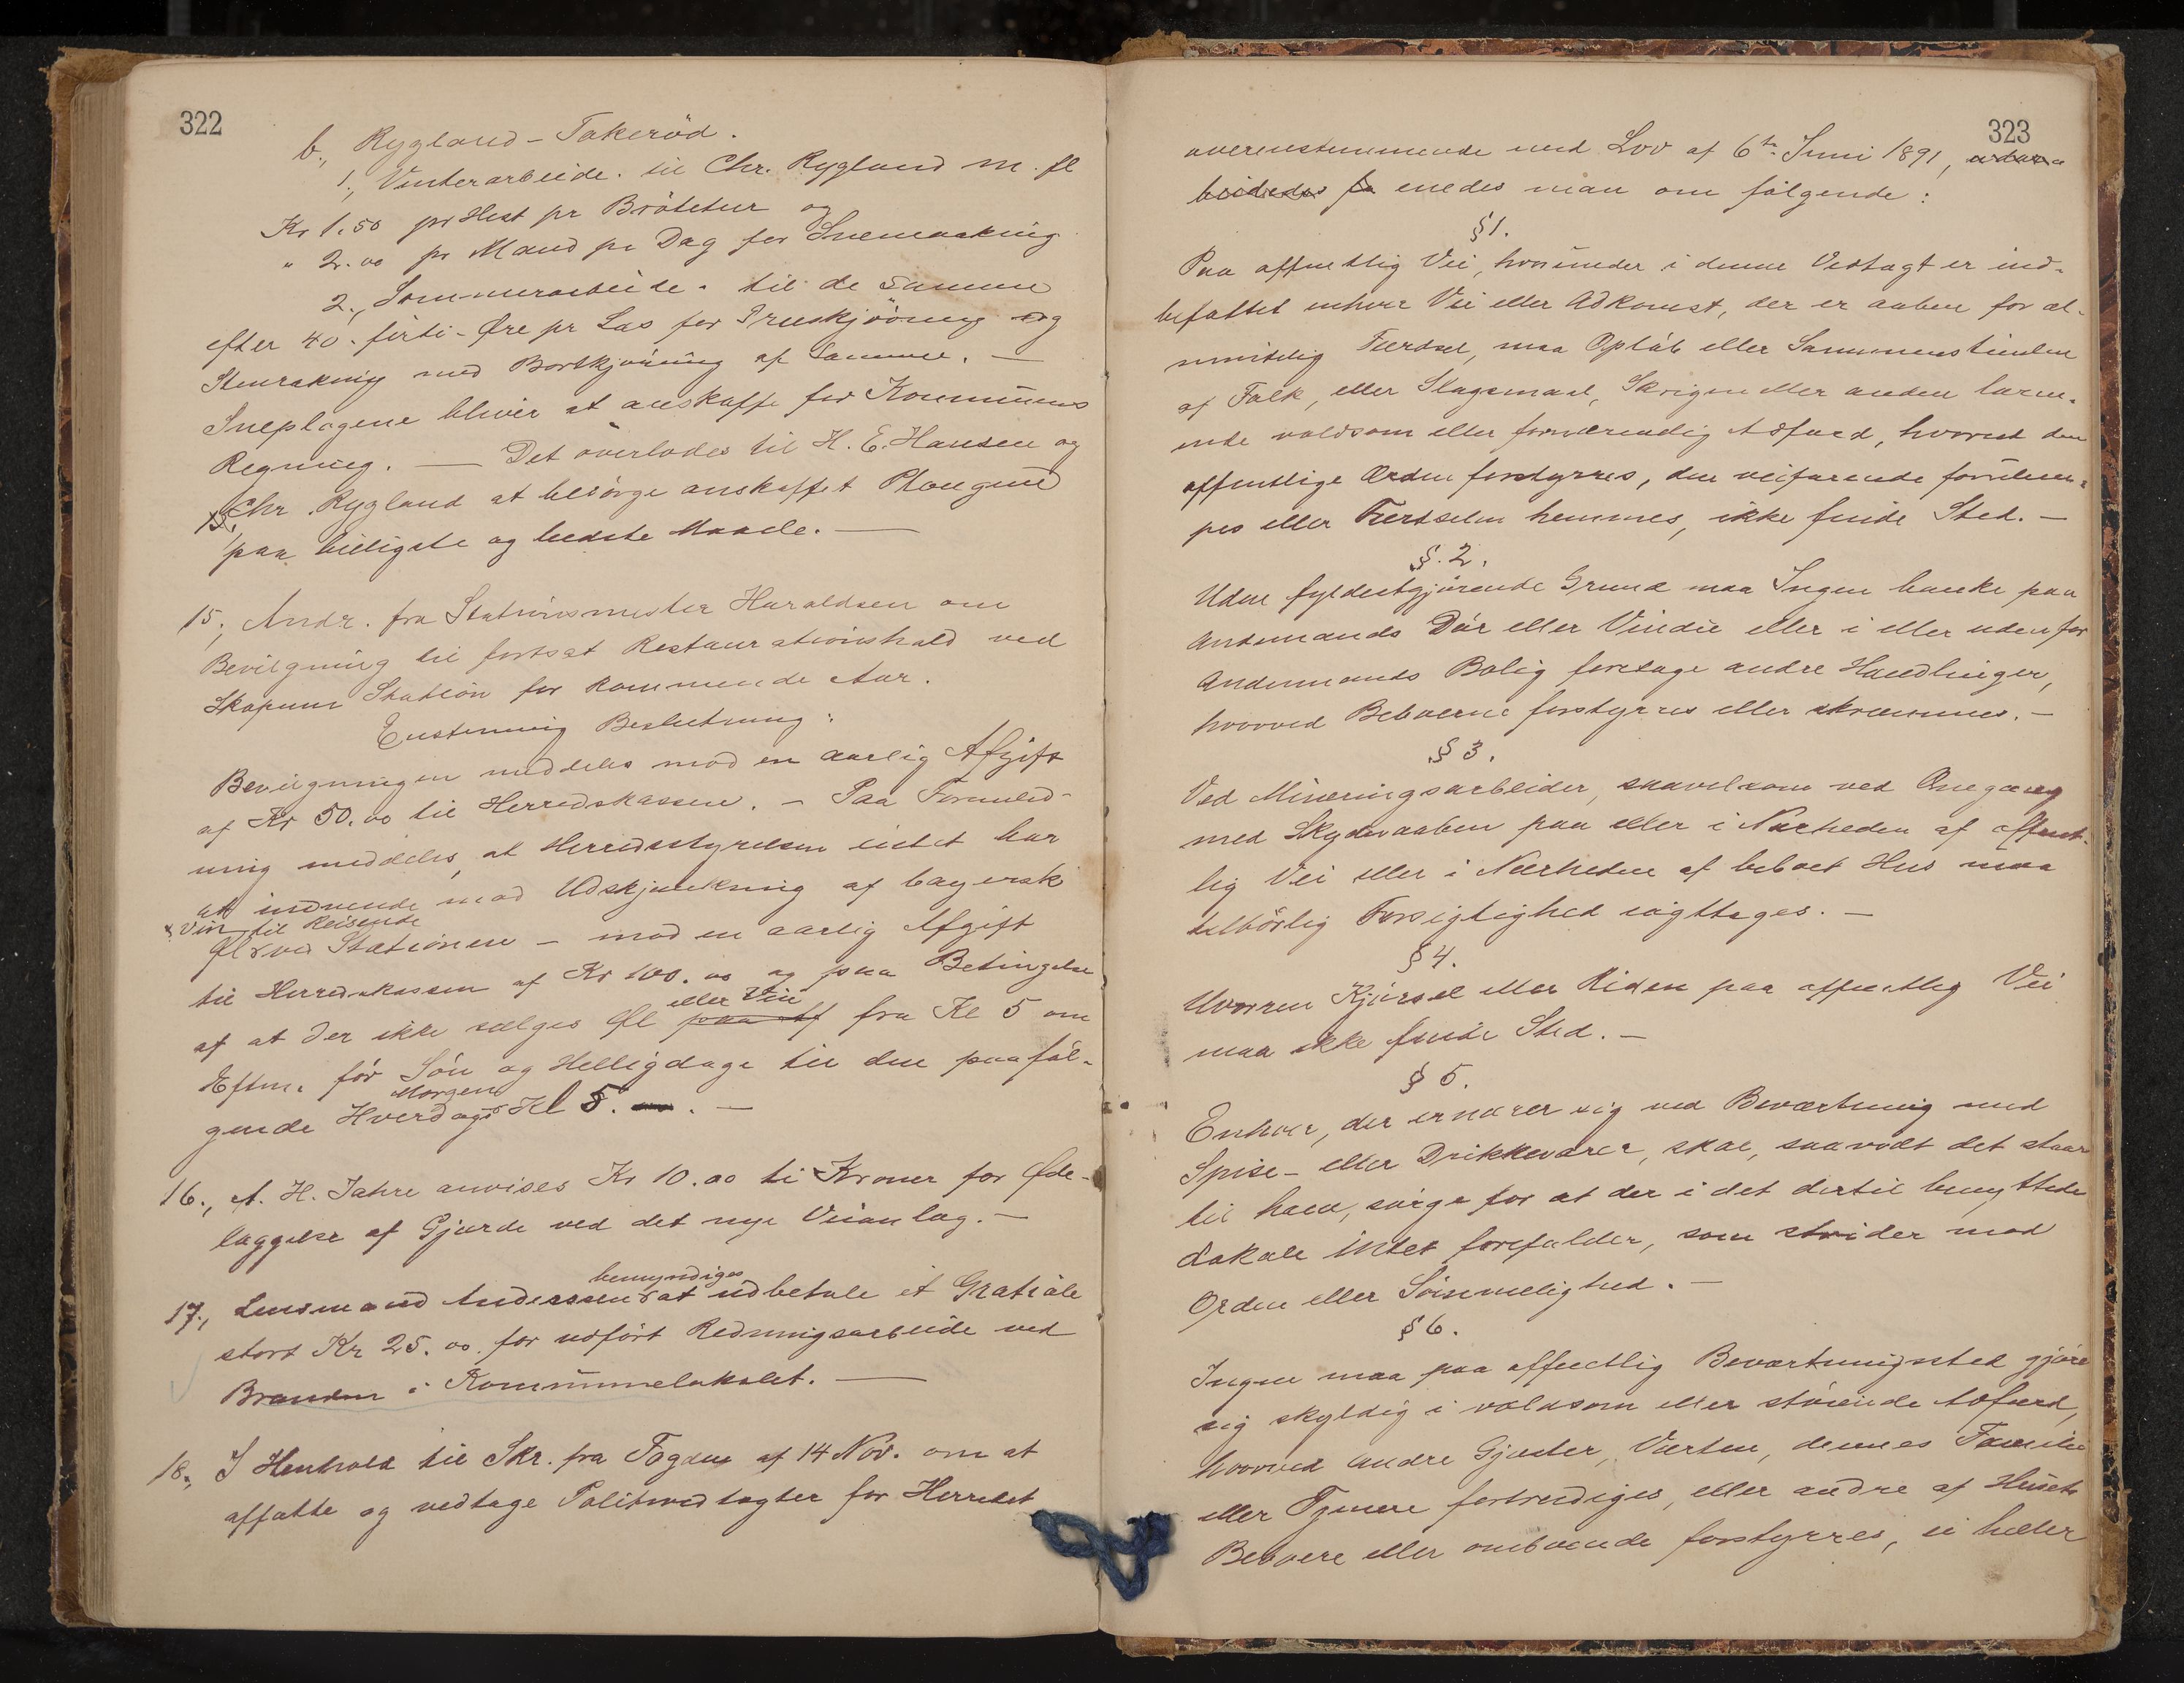 322
b., Rygland - Takeröd.
1., Vinterarbeide. til Chr. Rygland m. fl
Kr 1.50 pr Hest pr Brötetur og
" 2.00 pr Mand pr Dag for Snemaaking
2., Sommerarbeide. til de samme
efter 40. förti - Øre pr Las for Gruskjööring og
Stenrakning med Bortkjøring af samme. —
Sneplogene bliver at anskaffe for Kommunens
Regning. — Det overlodes til H. E. Hansen og
Chr. Rygland at besörge anskaffet Plougene
paa billigste og bedste Maade. —
15., Andr. fra Stationsmester Haraldsen om
Bevilgning til fortsat Restaurationshold ved
Skopum Station for kommende Aar.
Enstemmig Beslutning:
Bevilgningen meddeles mod en aarlig Afgift
af Kr 50.00 til Herredskassen. — Paa Foranled-
ning meddeles, at Herredsstyrelsen intet har
at indvende mod Udskjænkning af bayersk
x Vin til Reisende
Øl x ved Stationen — mod en aarlig Afgift
til Herredskassen af Kr 100.00 og paa Betingelse
eller Vin
af at der ikke sælges Øl paa Af fra Kl 5 om
Eftm. för Sön og Helligdage til den paaföl-
Morgen
gende Hverdags Kl 5. —
16., A. H. Jahre anvises Kr 10.00 ti Kroner for Øde-
læggelse af Gjærde ved det nye Veianlæg. —
bemyndiges
17., Lensmand Anderssen at udbetale et Gratiale
stort Kr 25.00. for udfört Redningsarbeide ved
Branden i Kommunelokalet. —
18., I Henhold til Skr. fra Fogden af 14 Nov. om at
affatte og vedtage Politivedtægter for Herredet
323
overenstemmende med Lov af 6te Juni 1891, udar-
beidedes fo enedes man om følgende:
§1.
Paa offentlig Vei, hvorunder i denne Vedtægt er ind-
befattet enhver Vei eller Adkomst, der er aaben for al-
mindelig Færdsel, maa Opløb eller Sammenstimlen
af Folk, eller Slagsmaal, Skrigen eller anden larm-
ende voldsom eller fornærmelig Adfærd, hvorved den
offentlige Orden forstyrres, den veifarende forulem-
pes eller Færdselen hemmes, ikke finde Sted. —
§.2.
Uden fyldestgjörende Grund maa Ingen banke paa
Andenmands Dör eller Vindu eller i eller udenfor
Andenmands Bolig foretage andre Handlinger,
hvorved Beboerne forstyrres eller skræmmes. —
§ 3.
Ved Mineringsarbeider, saavelsom ved Omgang
med Skydevaaben paa eller i Nærheden af offent-
lig Vei eller i Nærheden af beboet Hus maa
tilbörlig Forsigtighed iagttages. —
§ 4.
Uvorren Kjörsel eller Riden paa offentlig Vei
maa ikke finde Sted. —
§ 5.
Enhver, der ernærer sig ved Beværtning med
Spise- eller Drikkevarer, skal, saavidt det staar
til ham, sörge for at der i det dertil benyttede
Lokale intet forefalder, som strider mod
Orden eller Sömmelighed. —
§ 6.
Ingen maa paa offentlig Beværtningssted gjöre
sig skyldig i voldsom eller stöiende Adfærd,
hvorved andre Gjæster, Værten, dennes Familie
eller Tjenere fortrædiges, eller andre af Husets
Beboere eller omboende forstyrres, ei heller